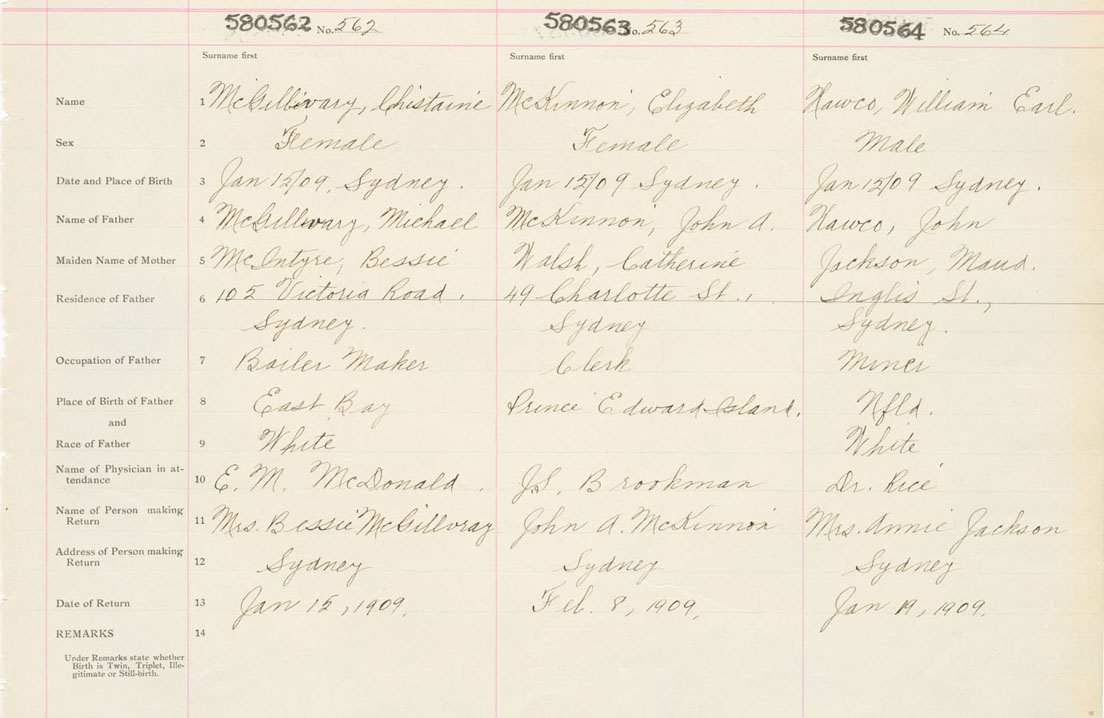 580562 No. 562 580563 No. 563 580564 No. 564
Surname first Surname first Surname first
Name 1 McGillivary, Chistaine McKinnon, Elizabeth Hawco, William Earl.
Sex 2 Female Female Male
Date and Place of Birth 3 Jan 15/09, Sydney. Jan 15/09 Sydney. Jan 15/09 Sydney.
Name of Father 4 McGillivary, Michael McKinnon, John A. Hawco, John
Maiden Name of Mother 5 McIntyre, Bessie Walsh, Catherine Jackson, Maud.
Residence of Father 6 105 Victoria Road. 49 Charlotte St., Inglis St.,
Sydney. Sydney Sydney.
Occupation of Father 7 Boiler Maker Clerk Miner
Place of Birth of Father 8 East Bay Prince Edward Island. Nfld.
and
Race of Father 9 White White
Name of Physician in at-
tendance 10 E. M. McDonald. J.S. Brookman Dr. Rice
Name of Person making
Return 11 Mrs. Bessie McGillvray John A. McKinnon Mrs. Annie Jackson
Address of Person making
Return 12 Sydney Sydney Sydney
Date of Return 13 Jan 15, 1909. Feb. 8, 1909. Jan 19, 1909.
REMARKS 14
Under Remarks state whether
Birth is Twin, Triplet, Ille-
gitimate or Still-birth.